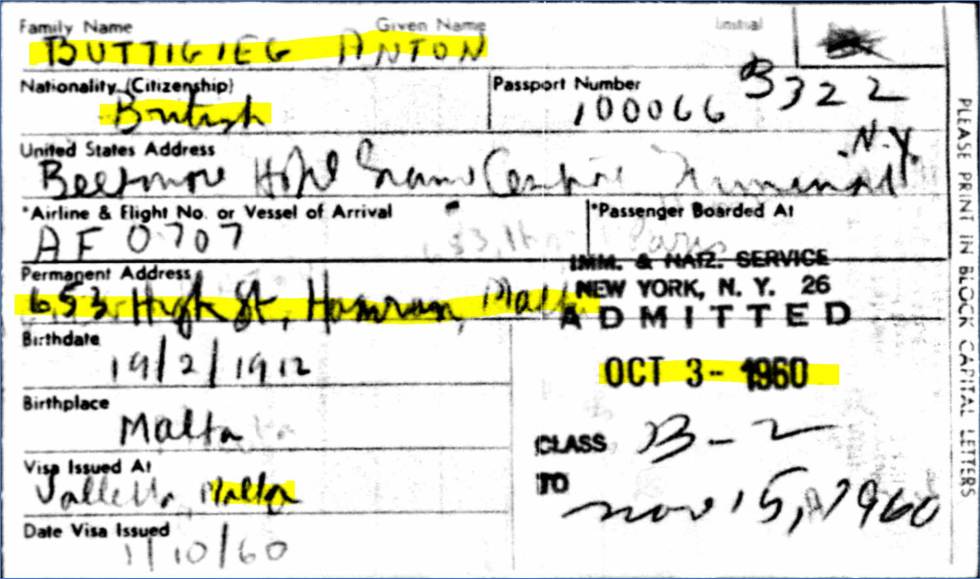 Family Name Given Name Initial
BUTTIGIEG ANTON
Nationality (Citizenship) Passport Number
British 100066 B322
United States Address
Beltmore Hotel Grand Central Terminal N.Y.
*Airline & Flight No. or Vessel of Arrival *Passenger Boarded At
AF 0707 Paris
Permanent Address
653 High St, Hamrun, Malta
IMM. & NATZ. SERVICE
NEW YORK, N. Y. 26
ADMITTED
Birthdate
19/2/1912
OCT 3- 1960
Birthplace
Malta
CLASS B-2
Visa Issued At
Valletta, Malta
TO Nov 15, 1960
Date Visa Issued
1/10/60
PLEASE PRINT IN BLOCK CAPITAL LETTERS